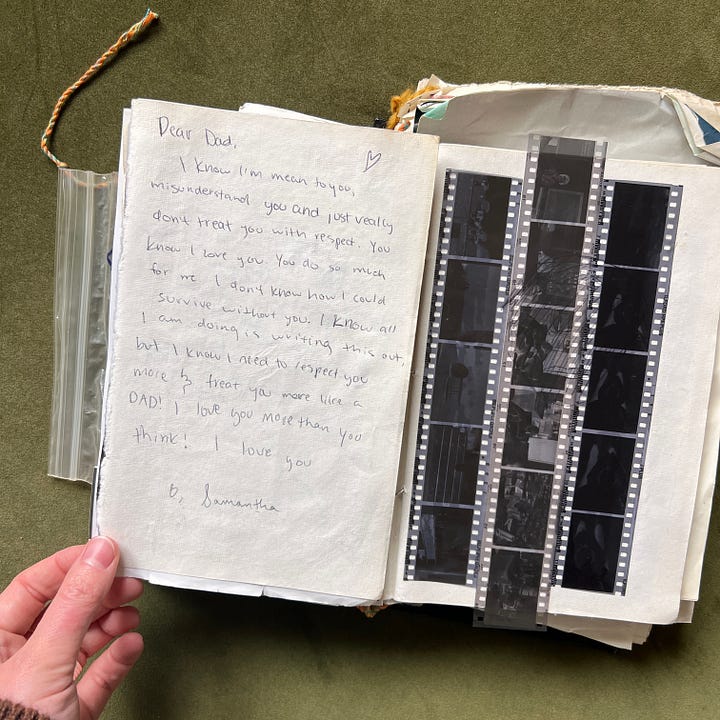 Dear Dad,
I know I'm mean to you,
misunderstand you and just really
dont treat you with respect. You
know I love you. You do so much
for me I don't know how I could
survive without you. I know all
I am doing is writing this out,
but I know I need to respect you
more & treat you more like a
DAD! I love you more than you
think! I love you
Samantha